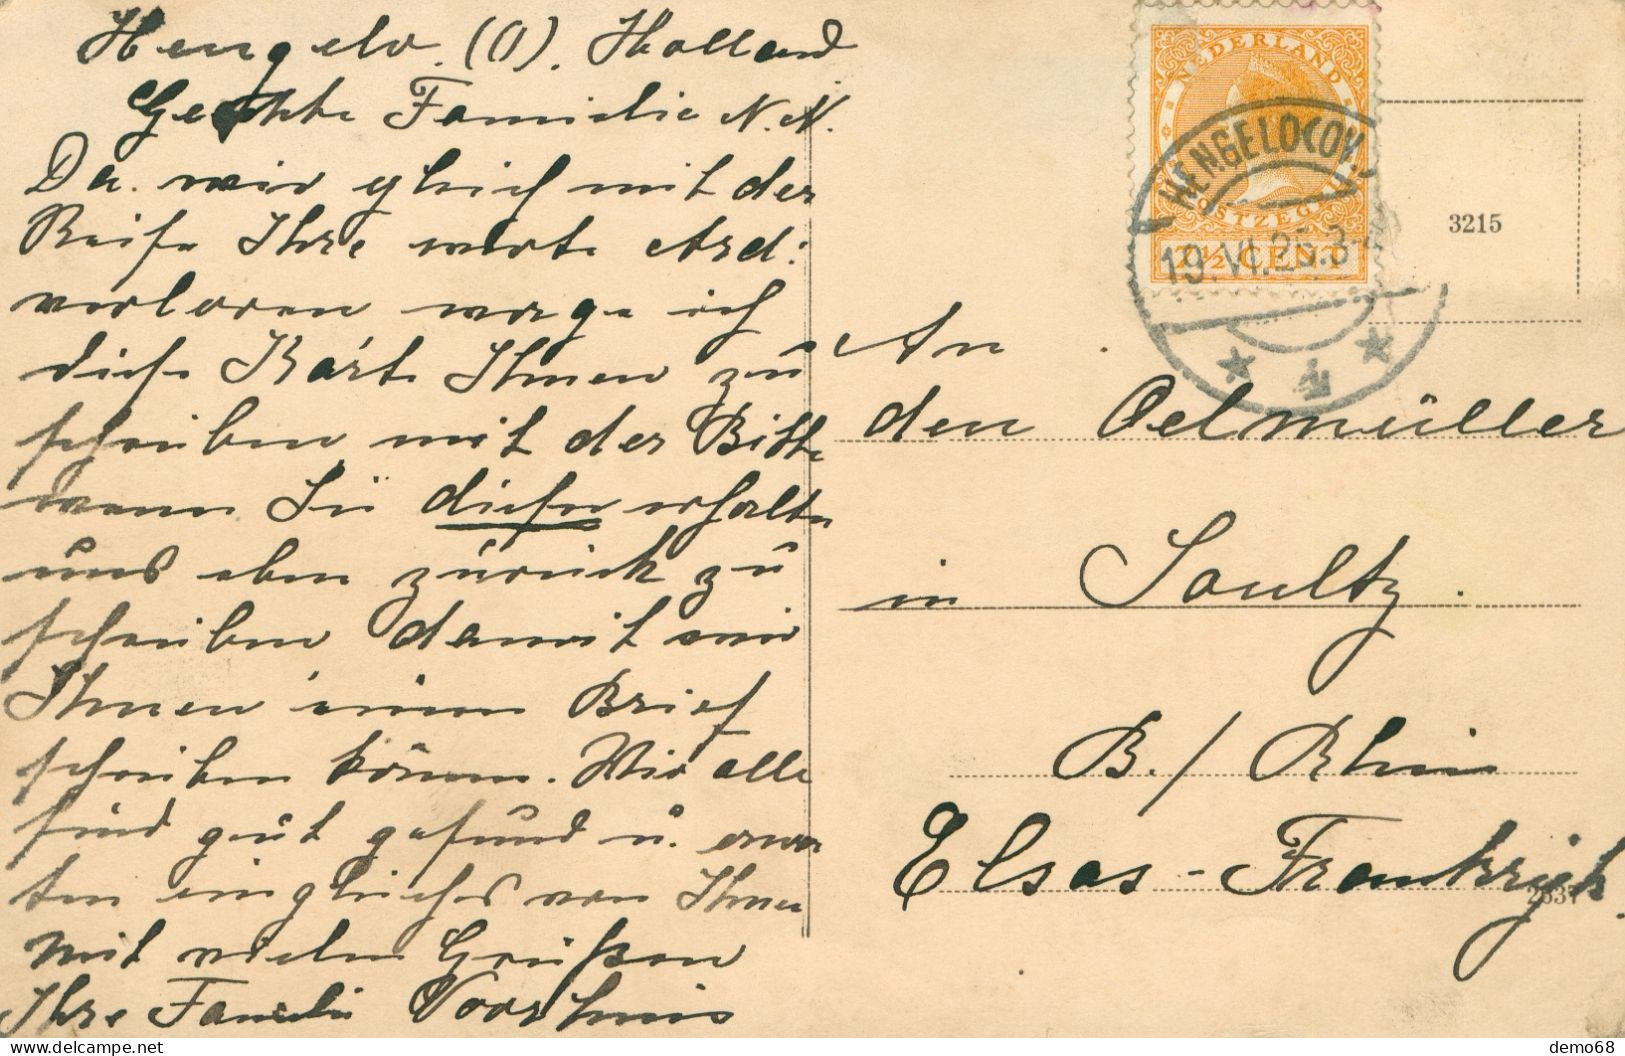 Hengelo. (O). Holland
Geehrte Familie N.N.
Da wir gleich mit der
Reise Ihre werte Adr:
verloren wage ich
diese Karte Ihnen zu
schreiben mit der Bitte
wenn Sie diese erhalten
uns eben zurück zu
schreiben damit wir
Ihnen einen Brief
schreiben können. Wir alle
sind gut gesund u. erwar
ten ein gleiches von Ihnen
Mit vielen Grüßen
Ihre Familie Voorthuis
NEDERLAND
POSTZEGEL
7½ CENT
HENGELO (OV.)
19.VI.25.3
4
3215
An
den Oelmüller
in Soultz.
B./ Rhin
Elsas-Frankrijk.
2337
delcampe.net
demo68